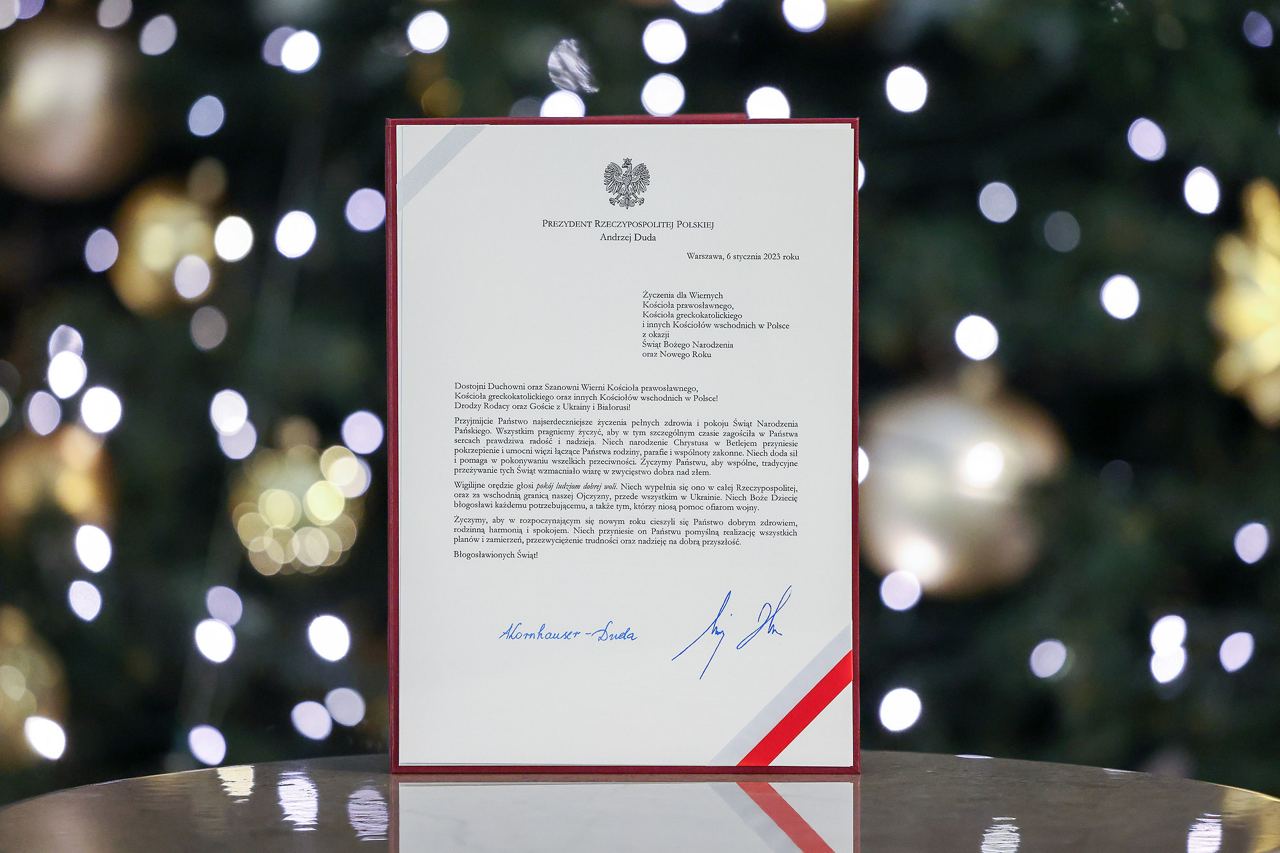 PREZYDENT RZECZYPOSPOLITEJ POLSKIEJ
Andrzej Duda
Warszawa, 6 stycznia 2023 roku
Życzenia dla Wiernych
Kościoła prawosławnego,
Kościoła greckokatolickiego
i innych Kościołów wschodnich w Polsce
z okazji
Świąt Bożego Narodzenia
oraz Nowego Roku
Dostojni Duchowni oraz Szanowni Wierni Kościoła prawosławnego,
Kościoła greckokatolickiego oraz innych Kościołów wschodnich w Polsce!
Drodzy Rodacy oraz Goście z Ukrainy i Białorusi!
Przyjmijcie Państwo najserdeczniejsze życzenia pełnych zdrowia i pokoju Świąt Narodzenia
Pańskiego. Wszystkim pragniemy życzyć, aby w tym szczególnym czasie zagościła w Państwa
sercach prawdziwa radość i nadzieja. Niech narodzenie Chrystusa w Betlejem przyniesie
pokrzepienie i umocni więzi łączące Państwa rodziny, parafie i wspólnoty zakonne. Niech doda sił
i pomaga w pokonywaniu wszelkich przeciwności. Życzymy Państwu, aby wspólne, tradycyjne
przeżywanie tych Świąt wzmacniało wiarę w zwycięstwo dobra nad złem.
Wigilijne orędzie głosi pokój ludziom dobrej woli. Niech wypełnia się ono w całej Rzeczypospolitej,
oraz za wschodnią granicą naszej Ojczyzny, przede wszystkim w Ukrainie. Niech Boże Dziecię
błogosławi każdemu potrzebującemu, a także tym, którzy niosą pomoc ofiarom wojny.
Życzymy, aby w rozpoczynającym się nowym roku cieszyli się Państwo dobrym zdrowiem,
rodzinną harmonią i spokojem. Niech przyniesie on Państwu pomyślną realizację wszystkich
planów i zamierzeń, przezwyciężenie trudności oraz nadzieję na dobrą przyszłość.
Błogosławionych Świąt!
AKornhauser-Duda